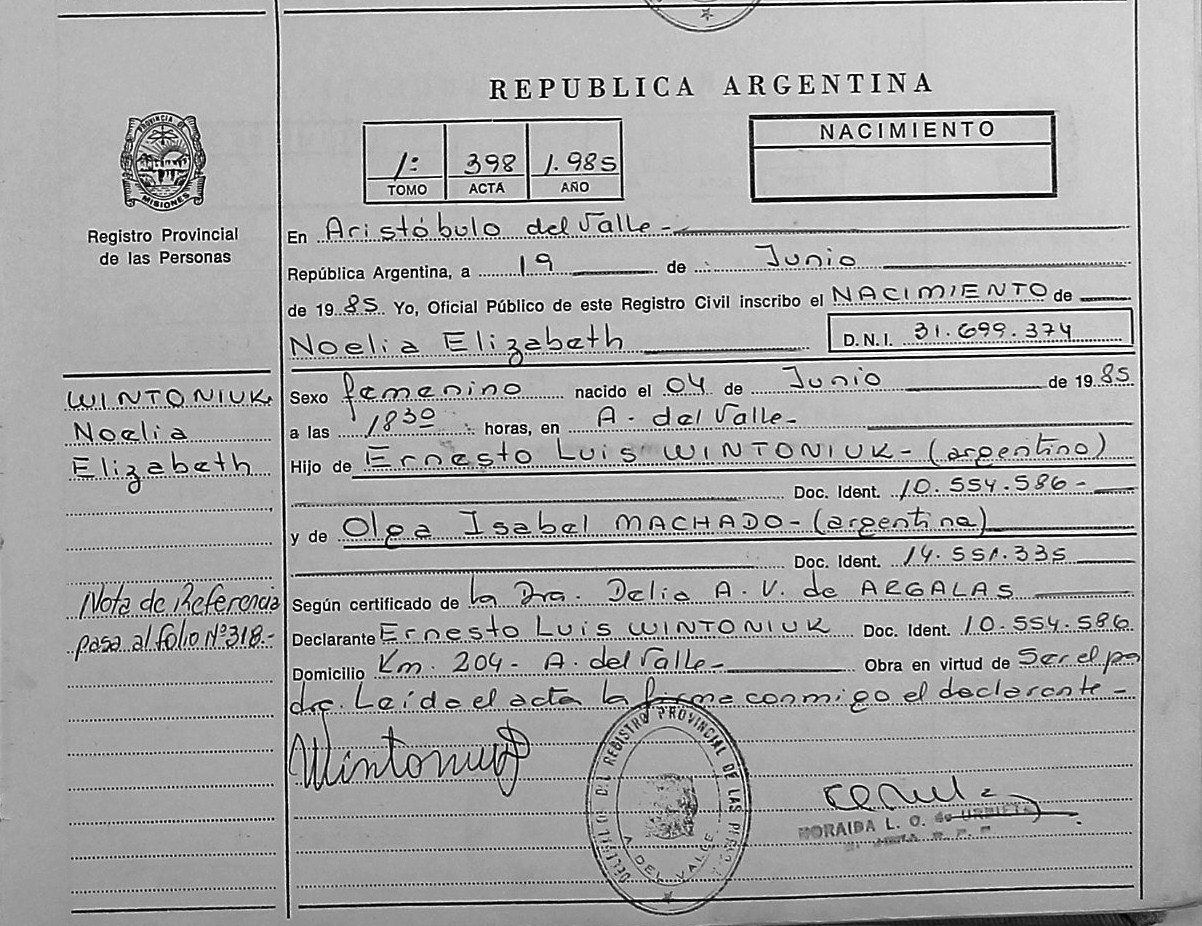 REPUBLICA ARGENTINA
PROVINCIA DE
MISIONES
Registro Provincial
de las Personas
1: 398 1.985
TOMO ACTA AÑO
NACIMIENTO
En Aristóbulo del Valle-
República Argentina, a 19 de Junio
de 1985 Yo, Oficial Público de este Registro Civil inscribo el NACIMIENTO de
Noelia Elizabeth D.N.I. 31.699.374
WINTONIUK
Noelia
Elizabeth
Sexo femenino nacido el 04 de Junio de 1985
a las 1830 horas, en A. del Valle-
Hijo de Ernesto Luis WINTONIUK- (argentino)
Doc. Ident. 10.554.586-
y de Olga Isabel MACHADO- (argentina)
Doc. Ident. 14.551.335
Nota de Referencia
pasa al folio Nº318.-
Según certificado de la Dra. Delia A. V. de ARGALAS
Declarante Ernesto Luis WINTONIUK Doc. Ident. 10.554.586
Domicilio Km. 204- A. del Valle- Obra en virtud de Ser el pa
dre. Leída el acta la firma conmigo el declarante-
Wintoniuk
DEL REGISTRO PROVINCIAL DE LAS
A. DEL VALLE
HORAIDA L. O. de